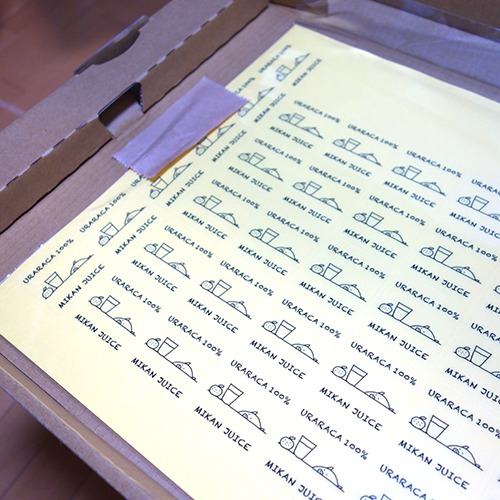 URARACA 100%
MIKAN JUICE
URARACA 100%
MIKAN JUICE
URARACA 100%
MIKAN JUICE
URARACA 100%
MIKAN JUICE
URARACA 100%
MIKAN JUICE
URARACA 100%
MIKAN JUICE
URARACA 100%
MIKAN JUICE
URARACA 100%
MIKAN JUICE
URARACA 100%
MIKAN JUICE
URARACA 100%
MIKAN JUICE
URARACA 100%
MIKAN JUICE
URARACA 100%
MIKAN JUICE
URARACA 100%
MIKAN JUICE
URARACA 100%
MIKAN JUICE
URARACA 100%
MIKAN JUICE
URARACA 100%
MIKAN JUICE
URARACA 100%
MIKAN JUICE
URARACA 100%
MIKAN JUICE
URARACA 100%
MIKAN JUICE
URARACA 100%
MIKAN JUICE
URARACA 100%
MIKAN JUICE
URARACA 100%
MIKAN JUICE
MIKAN JUICE
MIKAN JUICE